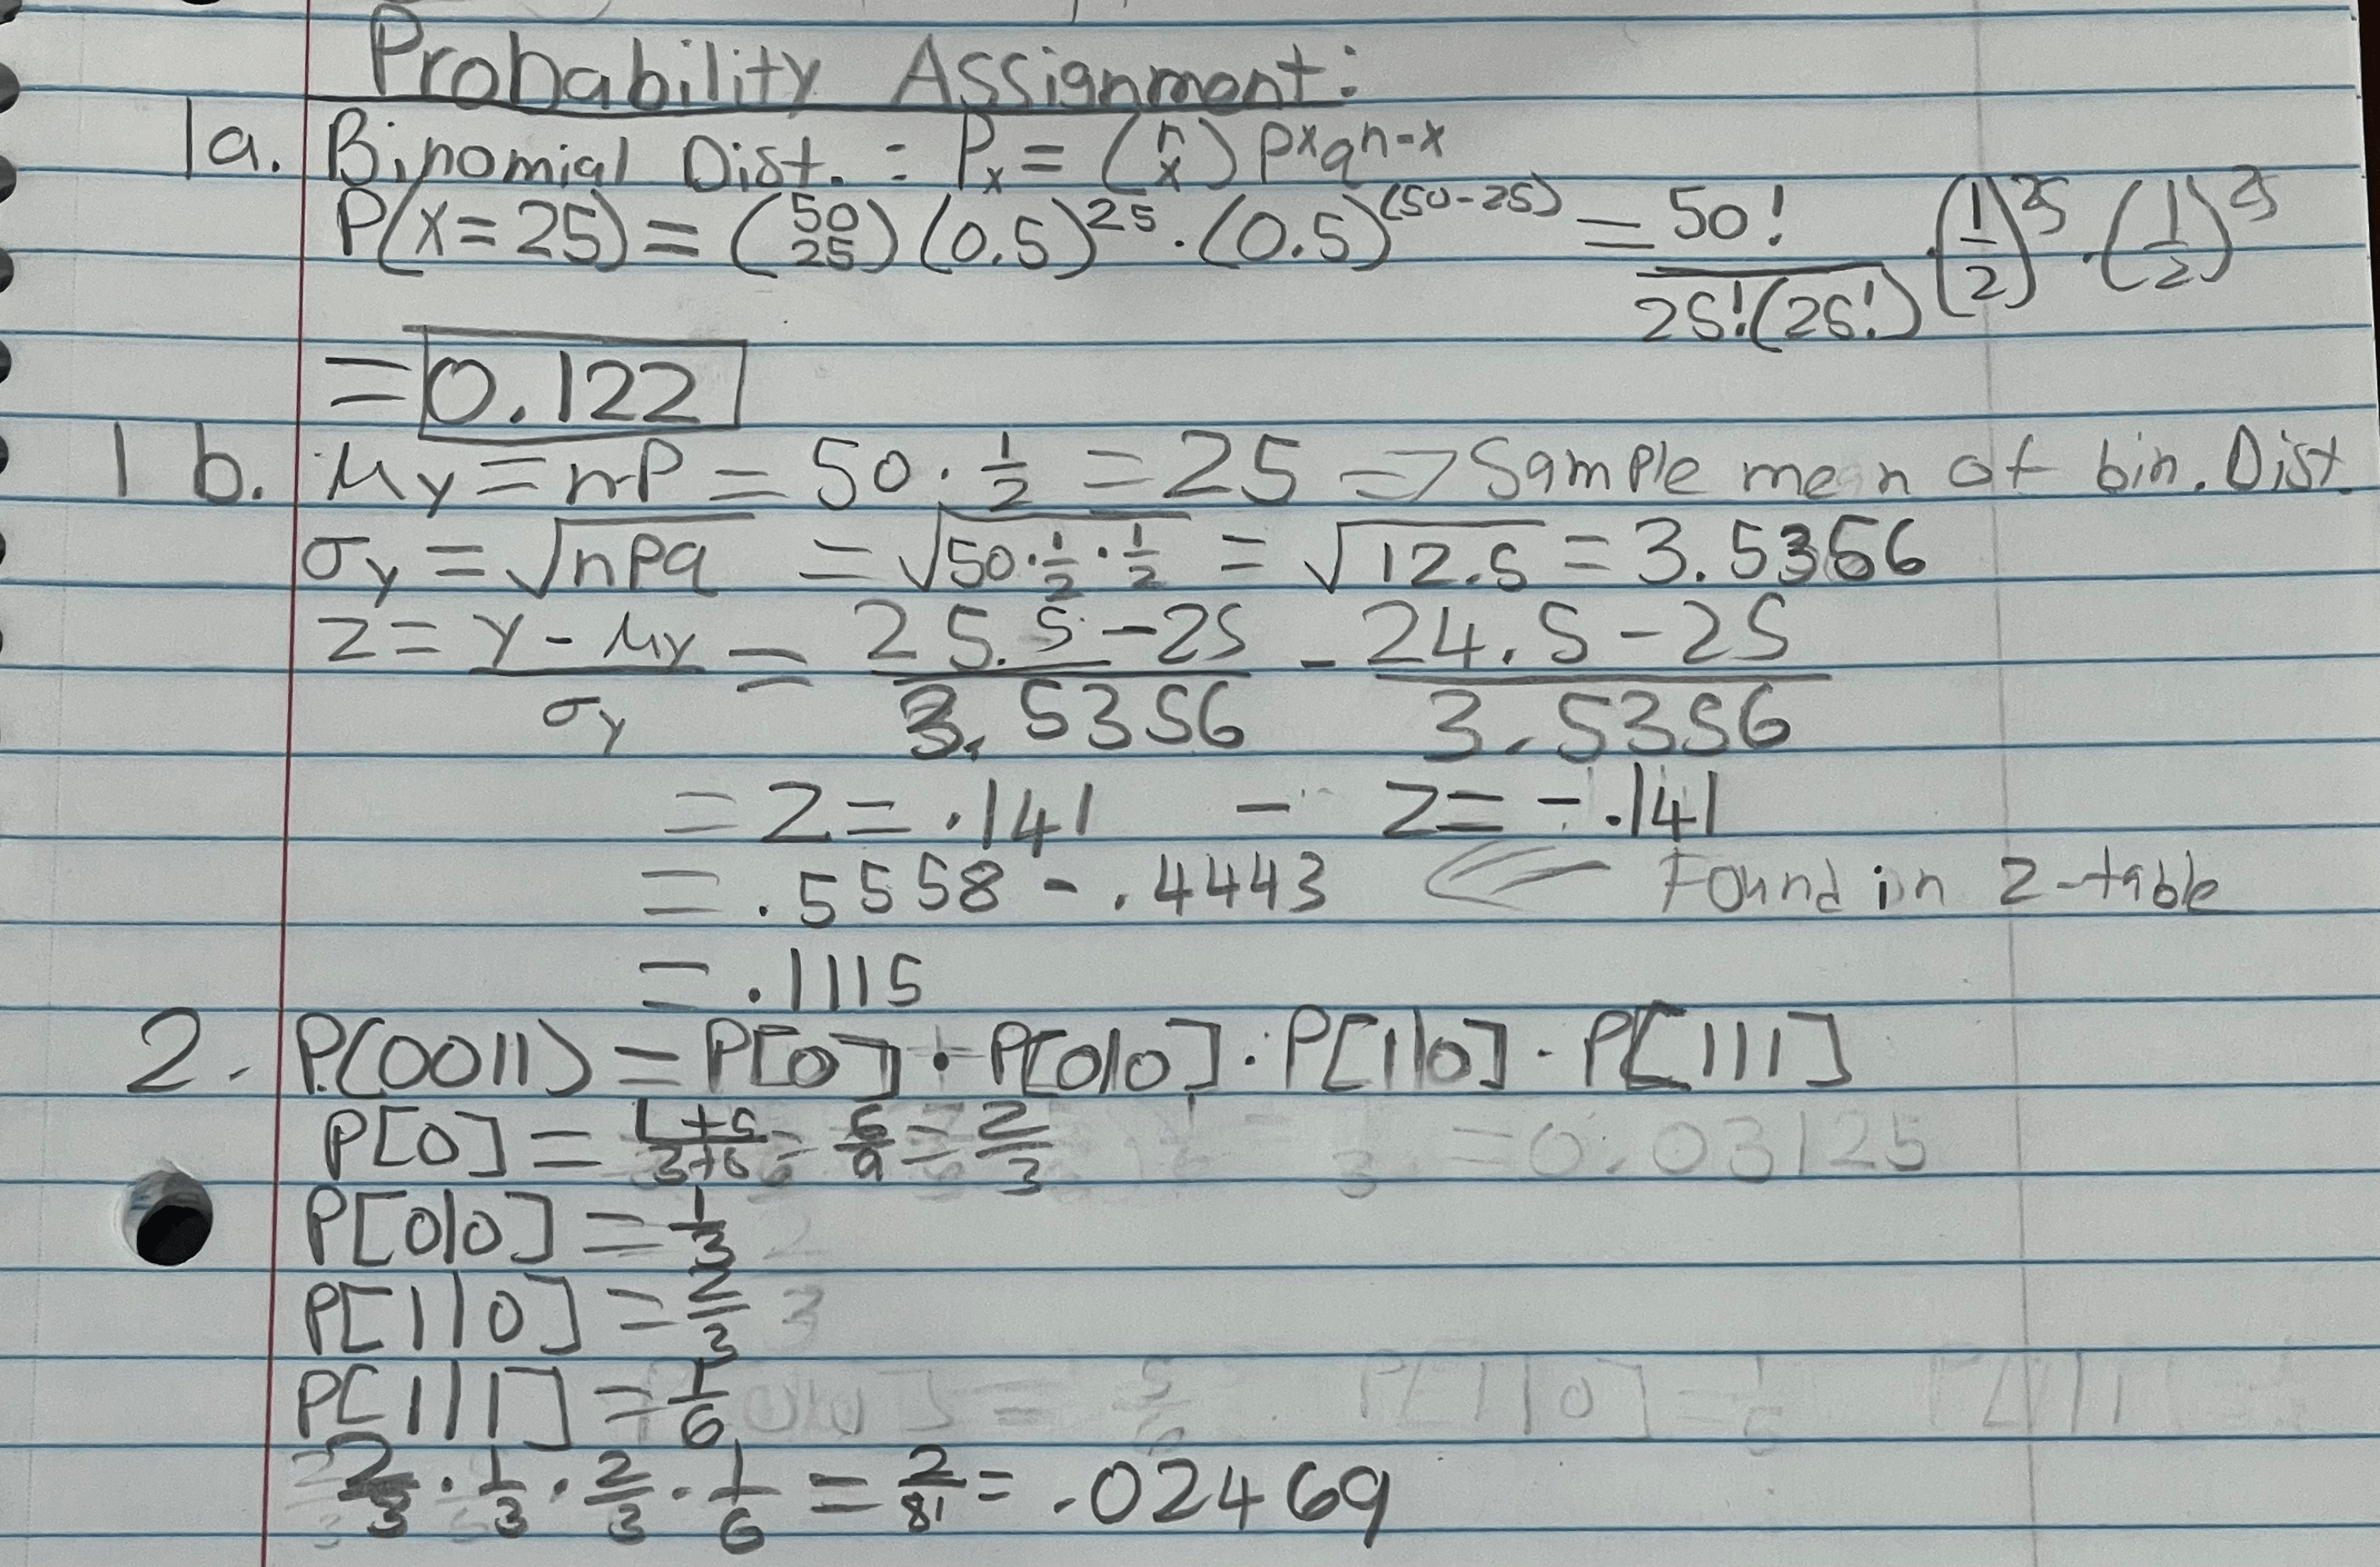 Probability Assignment:
1a. Binomial Dist. : Pₓ = (n x) pˣqⁿ⁻ˣ
P(x=25) = (50 25)(0.5)²⁵ · (0.5)⁽⁵⁰⁻²⁵⁾ = 50!/25!(25!) · (1/2)²⁵ · (1/2)²⁵
= 0.122
1b. μy = nP = 50 · 1/2 = 25 => Sample mean of bin. Dist.
σy = √npq = √50·1/2·1/2 = √12.5 = 3.5356
z = y - μy/σy = 25.5 - 25/3.5356 - 24.5 - 25/3.5356
= z = .141 - z = -.141
= .5558 - .4443 <= Found in z-table
= .1115
2. P(0011) = P[0] · P[0|0] · P[1|0] · P[1|1]
P[0] = 1+5/3+6 = 6/9 = 2/3 = 0.03125
P[0|0] = 1/3
P[1|0] = 2/3
P[1|1] = 1/6
2/3 · 1/3 · 2/3 · 1/6 = 2/81 = .02469